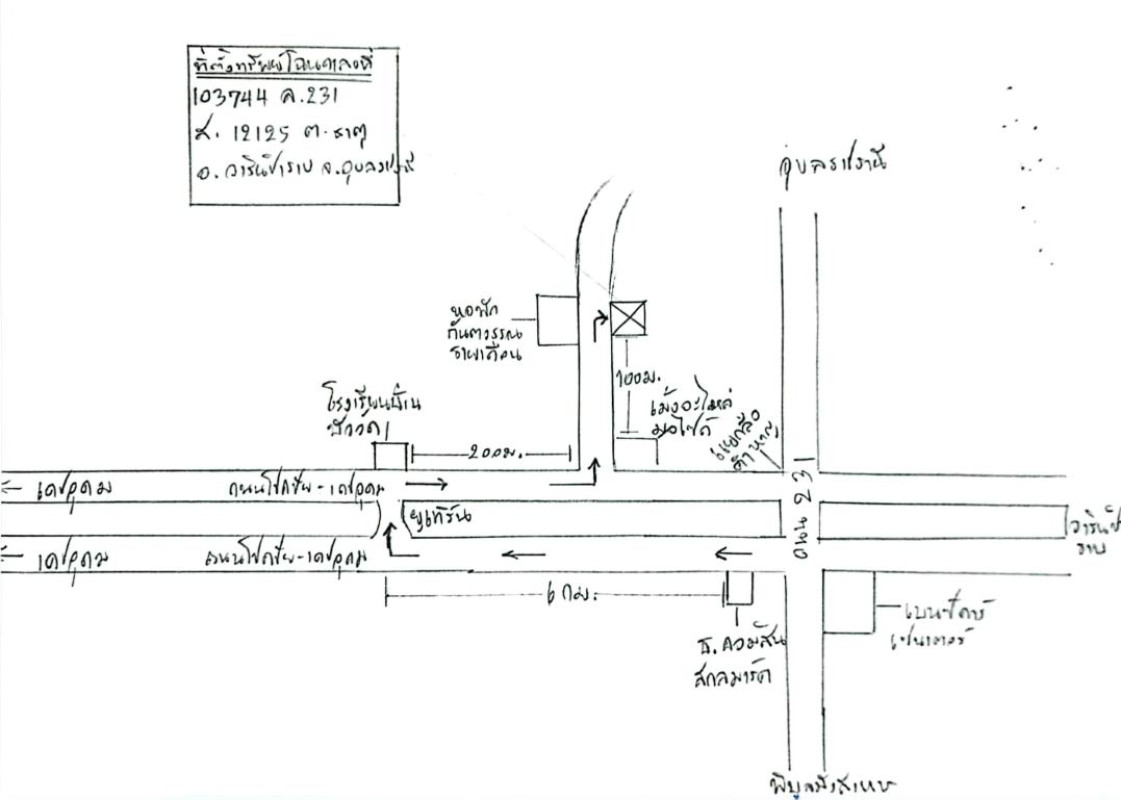 ที่ตั้งทรัพย์โฉนดเลขที่
103744 ล.231
ส. 12125 ต.ธาตุ
อ.วารินชำราบ จ.อุบลราชธานี
อุบลราชธานี
หอพัก
กันตวรรณ
รายเดือน
100ม.
เม้งอะไหล่
มอไซค์
แยกลือ
คำหาญ
โรงเรียนบ้าน
บัววัด
200ม.
← เดชอุดม
ถนนโชคชัย-เดชอุดม
ถนน 231
ยูเทิร์น
วารินชำ
ราบ
← เดชอุดม
ถนนโชคชัย-เดชอุดม
6 กม.
ธ.ออมสิน
สกลมาร์ค
เบนซ์คาร์
เซนเตอร์
พิบูลมังสาหาร